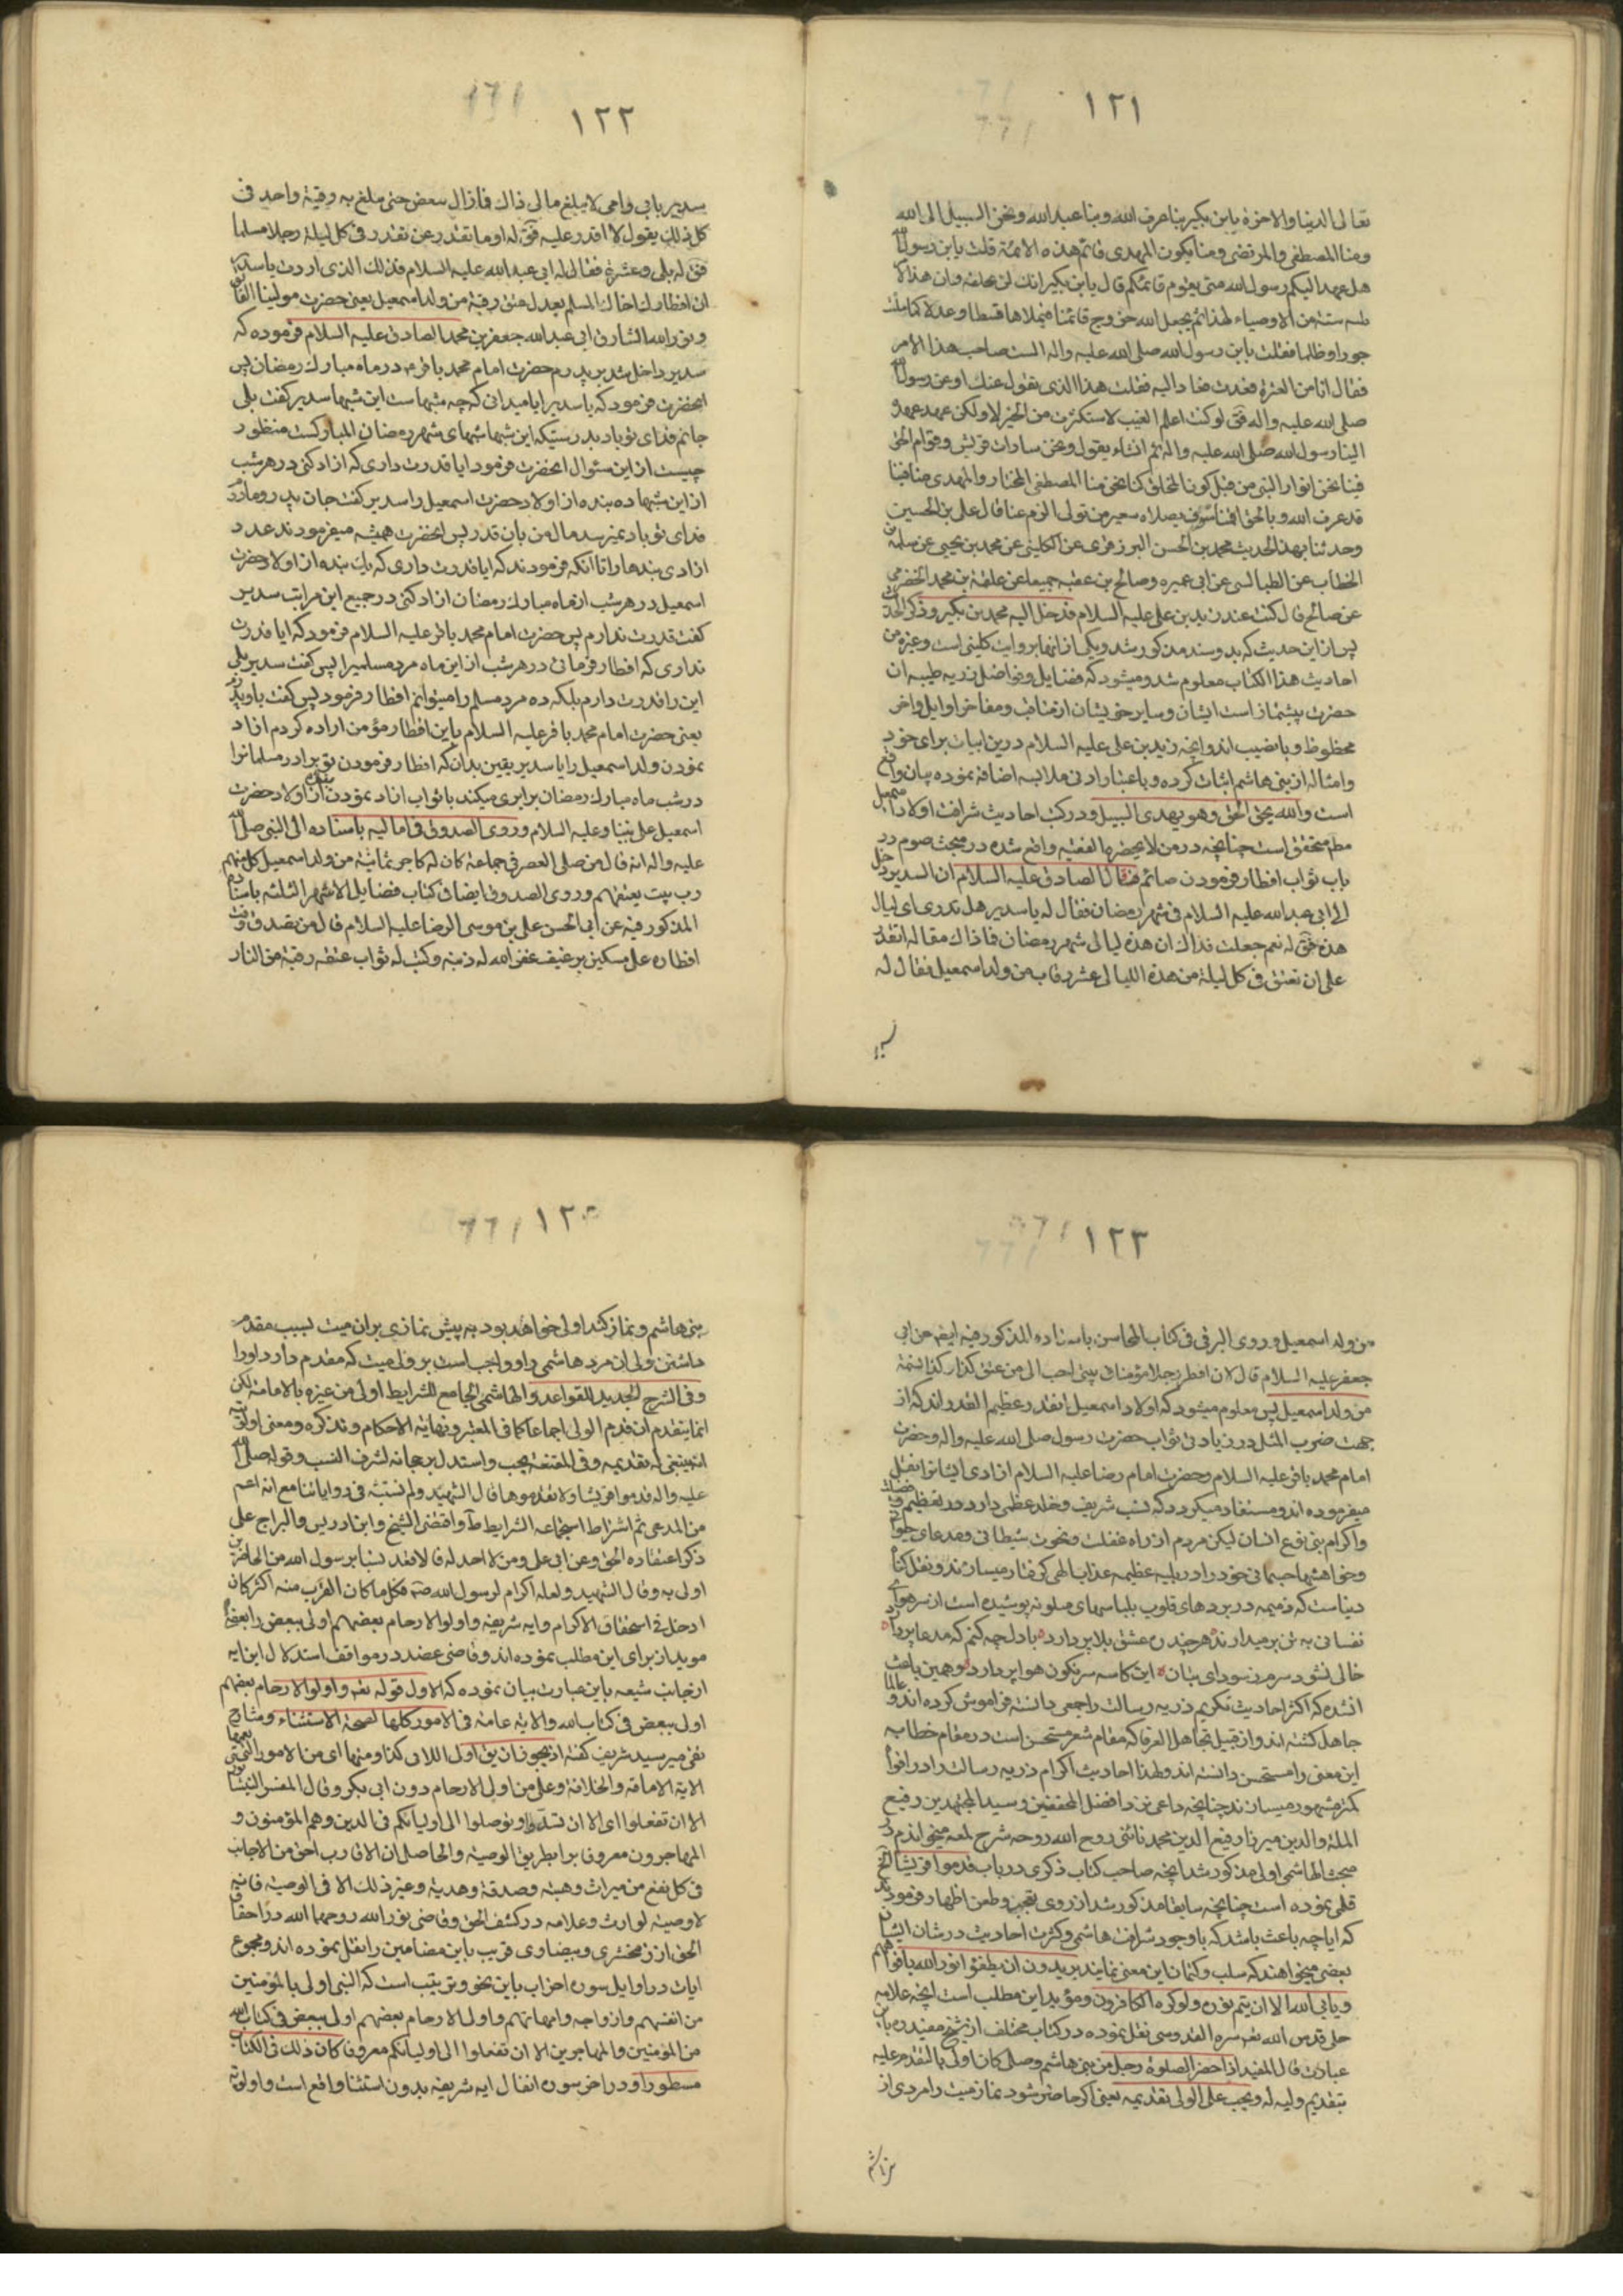 ١٢١
تعالی الدنیا والاخرة یابن بکیر بنا عرف الله وبنا عبد الله ونحن السبیل الی الله
ومنا المصطفی والمرتضی ومنا یکون المهدی قائم هذه الامة قلت یابن رسول الله
هل عهد الیکم رسول الله متی یقوم قائمکم قال یابن بکیر انک لن تلحقه وان هذا الامر
ستة من الاوصیاء لهذا ثم یجعل الله خروج قائمنا فیملاها قسطا وعدلا کما ملئت
جورا وظلما فقلت یابن رسول الله صلی الله علیه واله الست صاحب هذا الامر
فقال انا من العترة فعدت فعاد الیه فقلت هذا الذی تقول عنک او عن رسول الله
صلی الله علیه واله فق لو کنت اعلم الغیب لاستکثرت من الخیر لا ولکن عهد عهده
الینا رسول الله صلی الله علیه واله ثم انشاء یقول ونحن سادات قریش وقوام الحق
فینا نحن انوار التی من قبل کون الخلق کنا نحن منا المصطفی المختار والمهدی منا فینا
قد عرف الله وبالحق اقمنا سوف یصلاه سعیر من تولی الیوم عنا قال علی بن الحسین
وحدثنا بهذا الحدیث محمد بن الحسن البزوفری عن الکلینی عن محمد بن یحیی عن سلمة بن
الخطاب عن الطیالسی عن ابی عمیره وصالح بن عقبه جمیعا عن علقمة بن محمد الحضرمی
عن صالح قال کنت عند زید بن علی علیه السلام فدخل الیه محمد بن بکیر وذکر الحدیث
پس از این حدیث که بدو سند مذکور شد ویکی از انها بروایت کلینی است وغیره من
احادیث هذا الکتاب معلوم شد ومیشود که فضایل وفواضل ذریه طیبه ان
حضرت بیشتر از است ایشان وسایر خویشان از مناقب ومفاخر اوایل واخر
محظوظ وبا نصیب اند وانچه زید بن علی علیه السلام درین ابیات برای خود
وامثاله از بنی هاشم اثبات کرده وباعتبار ادنی ملابسه اضافه نموده بیان واقع
است والله یحق الحق وهو یهدی السبیل ودر کتب احادیث شرافت اولاد اسمعیل
مط متحقق است چنانچه در من لایحضره الفقیه واقع شده در مبحث صوم در
باب ثواب افطار فرمودن صائم فقال الصادق علیه السلام ان السدیر دخل
الی ابی عبد الله علیه السلام فی شهر رمضان فقال له یا سدیر هل تدری ای لیال
هذه فق له نعم جعلت فداک ان هذه لیالی شهر رمضان فما ذاک فقال له اتقدر
علی ان تعتق فی کل لیلة من هذه اللیالی عشر رقاب من ولد اسمعیل فقال له
١٢٢
سدیر بابی وامی لا یبلغ مالی ذاک فما زال ینقص حتی بلغ به رقبة واحدة فی
کل ذلک یقول لا اقدر علیه فق له او ما تقدر عن تفطر فی کل لیلة رجلا مسلما
فق له بلی وعشرة فقال له ابی عبد الله علیه السلام فذلک الذی اردت یا سدیر
ان افطارک اخاک المسلم یعدل عتق رقبة من ولد اسمعیل یعنی حضرت مولینا القائل
ونور الله الشارق ابی عبد الله جعفر بن محمد الصادق علیه السلام فرموده که
سدیر داخل شد بر پدرم حضرت امام محمد باقر در ماه مبارک رمضان پس
انحضرت فرمود که یا سدیر ایا میدانی که چه شبهاست این شبها سدیر گفت بلی
جانم فدای تو باد بدرستیکه این شبها شبهای شهر رمضان المبارکست منظور
چیست از این سئوال انحضرت فرمود ایا قدرت داری که ازاد کنی در هر شب
از این شبها ده بنده از اولاد حضرت اسمعیل را سدیر گفت جان پدر ومادرم
فدای تو باد نمیرسد مال من بان قدر پس انحضرت همیشه میفرمودند عدد
ازادی بندها را تا انکه فرمودند که ایا قدرت داری که یک بنده از اولاد حضرت
اسمعیل در هر شب از ماه مبارک رمضان ازاد کنی در جمیع این مراتب سدیر
گفت قدرت ندارم پس حضرت امام محمد باقر علیه السلام فرمود که ایا قدرت
نداری که افطار فرمائی در هر شب از این ماه مرد مسلمیرا پس گفت سدیر بلی
این را قدرت دارم بلکه ده مرد مسلم را میتوانم افطار فرمود پس گفت باو پدرم
یعنی حضرت امام محمد باقر علیه السلام باین افطار مؤمن اراده کردم ازاد
نمودن ولد اسمعیل را یا سدیر یقین بدان که افطار فرمودن تو برادر مسلمانرا
در شب ماه مبارک رمضان برابری میکند با ثواب ازاد نمودن بنده از اولاد حضرت
اسمعیل علی نبینا وعلیه السلام وروی الصدوق فی امالیه باسناده الی النبی صلی الله
علیه واله انه قال من صلی العصر فی جماعة کان له کاجر ثمانیة من ولد اسمعیل کل منهم
رب بیت یعتقهم وروی الصدوق ایضا فی کتاب فضایل الاشهر الثلثه باسناده
المذکور فیه عن ابی الحسن علی بن موسی الرضا علیه السلام قال من تصدق وقت
افطاره علی مسکین برغیف غفر الله له ذنبه وکتب له ثواب عتقه رقبة من النار
١٢٣
من ولد اسمعیل وروی البرقی فی کتاب المحاسن باسناده المذکور فیه ایضه عن ابی
جعفر علیه السلام قال لان افطر رجلا مؤمنا فی بیتی احب الی من عتق کذا وکذا نسمة
من ولد اسمعیل پس معلوم میشود که اولاد اسمعیل انقدر عظیم القدر اند که از
جهت ضرب المثل در زیادتی ثواب حضرت رسول صلی الله علیه واله وحضرت
امام محمد باقر علیه السلام وحضرت امام رضا علیه السلام ازادی ایشانرا نقل
میفرموده اند ومستفاد میگردد که نسب شریف دخل عظمی دارد در تعظیم
واکرام بنی نوع انسان لیکن مردم از راه غفلت ونخوت شیطانی ومدعای حیوانی
وخواهشهای جسمانی خود را در بلیه عظیمه عذاب الهی گرفتار میسازند
دنیاست که ذمیمه در پردهای قلوب بلباسهای ملونه پوشیده است از سر هوای
نفسانی به تن برمیدارند هر چند ره عشق بلا پر دارد با دل چه کنم که مدعا پر دارد
خالی نشود سرم ز سودای بتان این کاسه سرنگون هوا پر دارد وهمین باعث
انشده که اکثر احادیث تکریم ذریه رسالت را جمعی دانسته فراموش کرده اند و
جاهل گشته اند واز قبیل تجاهل العرفا که مقام شعر مستحسن است در مقام خطابه
این معنی را مستحسن دانسته اند ولهذا احادیث اکرام ذریه رسالت را در افواه
کمتر مشهور میسازند چنانچه داعی نزد افضل المحققین وسید المجتهدین رفیع
الملة والدین میرزا رفیع الدین محمد نائنی روح الله روحه شرح لمعه میخواندم در
مبحث الهاشمی اولی مذکور شد انچه صاحب کتاب ذکری در باب قدموا قریشا الخ
قلمی نموده است چنانچه سابقا مذکور شد از روی تعجب وطعن اظهار فرمودند
که ایا چه باعث باشد که با وجود شرافت هاشمی وکثرت احادیث در شان ایشان
بعضی میخواهند که سلب وکتمان این معنی نمایند یریدون ان یطفئوا نور الله بافواههم
ویابی الله الا ان یتم نوره ولو کره الکافرون ومؤید این مطلب است انچه علامه
حلی قدس الله نفسه سره القدوسی نقل نموده در کتاب مختلف از شیخ مفید ره باین
عبارت قال المفید اذا حضر الصلوة رجل من بنی هاشم وصلی کان اولی بالتقدم علیه
بتقدیم ولیه له ویجب علی الولی تقدیمه یعنی اگر حاضر شود نماز میت را مردی از
١٢٤
بنی هاشم ونماز کند اولی خواهد بود به پیش نمازی بر ان میت بسبب مقدم
داشتن ولی ان مرد هاشمی را وواجب است بر ولی میت که مقدم دارد او را
وفی الشرح الجدید للقواعد والهاشمی الجامع للشرایط اولی من غیره بالامامة لکن
انما یتقدم ان قدم الولی اجماعا کما فی المعتبر ونهایة الاحکام وتذکره ومعنی اولویته
انه ینبغی له تقدیمه وفی المقنعة یجب واستدل برجحانه لشرف النسب وقوله صلی الله
علیه واله قدموا قریشا ولا تقدموها قال الشهید ولم نثبته فی روایاتنا مع انه اعم
من المدعی ثم اشتراط استجماعه الشرایط واقتضی الشیخ وابن ادریس والبراج علی
ذکر اعتقاده الحق وعن ابی علی ومن لا احد له قالاقعد نسبا برسول الله من الحاضرین
اولی به وقال الشهید ولعله اکرام لرسول الله صه فکلما کان القرب منه اکثر کان
ادخل فی استحقاق الاکرام وایه شریفه واولوا الارحام بعضهم اولی ببعض را بعضی
موید از برای این مطلب نموده اند وقاضی عضد در مواقف استدلال این ایه
از جانب شیعه باین عبارت بیان نموده که الاول قوله تعم واولوا الارحام بعضهم
اولی ببعض فی کتاب الله والایة عامة فی الامور کلها لصحة الاستثناء وشارح
یعنی میر سید شریف گفته اذ یجوز ان یق اولی الا فی کذا ومنها ای من الامور التی تعمها
الایة الامامة والخلافة وعلی من اولی الارحام دون ابی بکر وقال المفسر النیشابوری
الا ان تفعلوا ای الا ان تسدوا وتوصلوا الی اولیائکم فی الدین وهم المؤمنون و
المهاجرون معروفا برا بطریق الوصیة والحاصل ان الاقارب احق من الاجانب
فی کل نفع من میراث وهبة وصدقة وهدیة وغیر ذلک الا فی الوصیة فانه
لا وصیة لوارث وعلامه در کشف الحق وقاضی نور الله روحهما الله در احقاق
الحق از زمخشری وبیضاوی قریب باین مضامین را نقل نموده اند ومجموع
ایات در اوایل سوره احزاب باین نحو وترتیب است که النبی اولی بالمؤمنین
من انفسهم وازواجه وامهاتهم واولوا الارحام بعضهم اولی ببعض فی کتاب الله
من المؤمنین والمهاجرین الا ان تفعلوا الی اولیائکم معروفا کان ذلک فی الکتاب
مسطورا ودر اخر سوره انفال ایه شریفه بدون استثنا واقع است واولوا